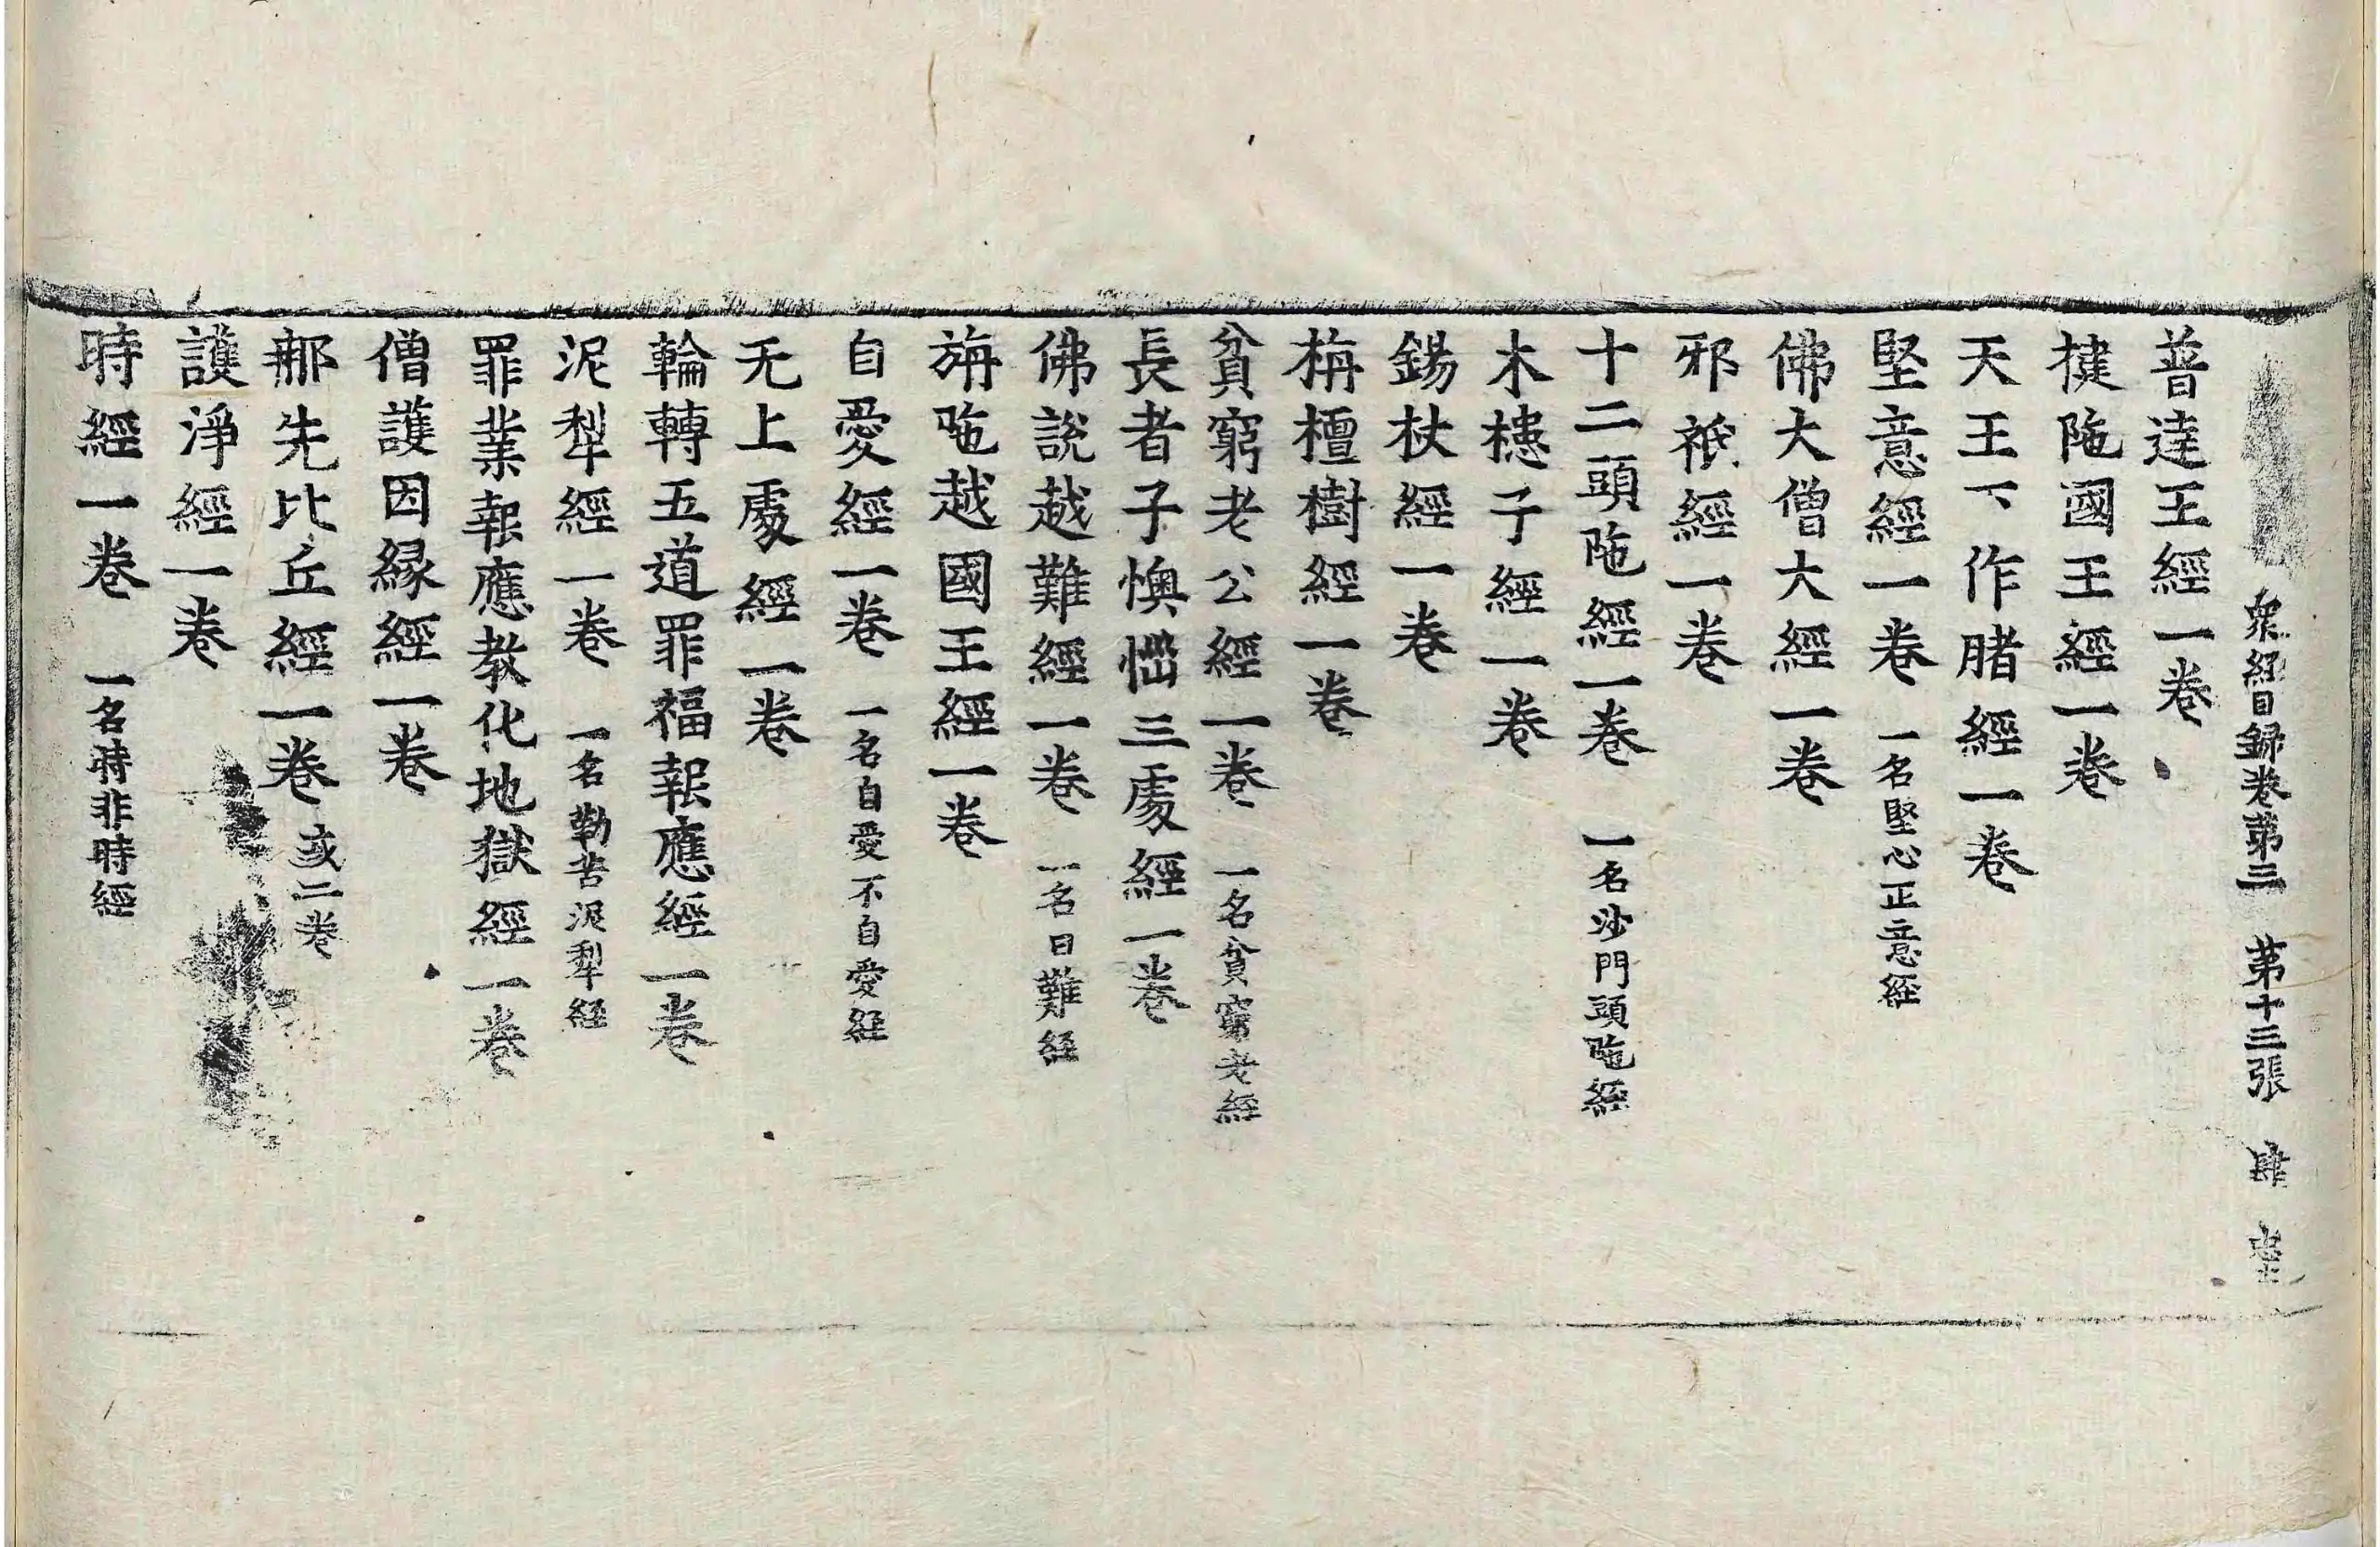 衆經目録卷第三 第十三張
普達王經一卷
揵陁國王經一卷
天王下作腤經一卷
堅意經一卷 一名堅心正意經
佛大僧大經一卷
邪祇經一卷
十二頭陁經一卷 一名沙門頭陁經
木槵子經一卷
錫杖經一卷
栴檀樹經一卷
貧窮老公經一卷 一名貧窮老經
長者子懊惱三處經一卷
佛說越難經一卷 一名曰難經
旃陁越國王經一卷
自愛經一卷 一名自愛不自愛經
无上處經一卷
輪轉五道罪福報應經一卷
泥犁經一卷 一名勤苦泥犁經
罪業報應教化地獄經一卷
僧護因縁經一卷
那先比丘經一卷 或二卷
護淨經一卷
時經一卷 一名時非時經